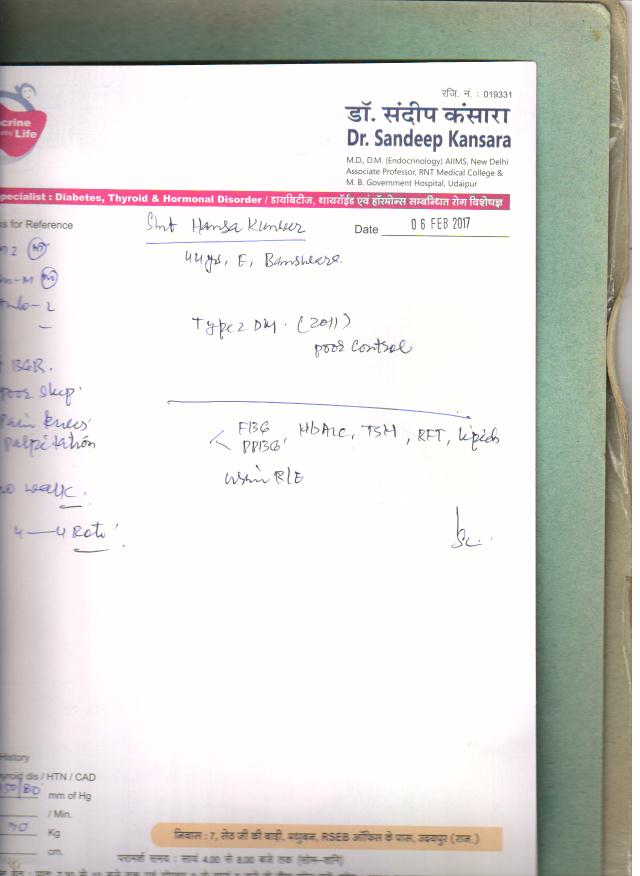 रजि. नं. : 019331
डॉ. संदीप कंसारा
Dr. Sandeep Kansara
M.D., D.M. (Endocrinology) AIIMS, New Delhi
Associate Professor, RNT Medical College &
M. B. Government Hospital, Udaipur
crine
Life
pecialist : Diabetes, Thyroid & Hormonal Disorder / डायबिटीज, थायरॉईड एवं हॉरमोन्स सम्बन्धित रोग विशेषज्ञ
s for Reference
Smt Hansa Kunwer
Date 06 FEB 2017
44 yrs, F,
Type 2 DM. (2011)
poor control
BGR.
poor sleep
Pain knees
palpitation
no walk.
4—4 Roti
FBG
PPBG
HbA1c, TSH, RFT, Lipids
Urine R/E
History
yroid dis / HTN / CAD
150/80 mm of Hg
/ Min.
70 Kg
cm.
निवास : 7, सेठ जी की बाड़ी, मधुबन, RSEB ऑफिस के पास, उदयपुर (राज.)
परामर्श समय : सायं 4.00 से 8.00 बजे तक (सोम-शनि)